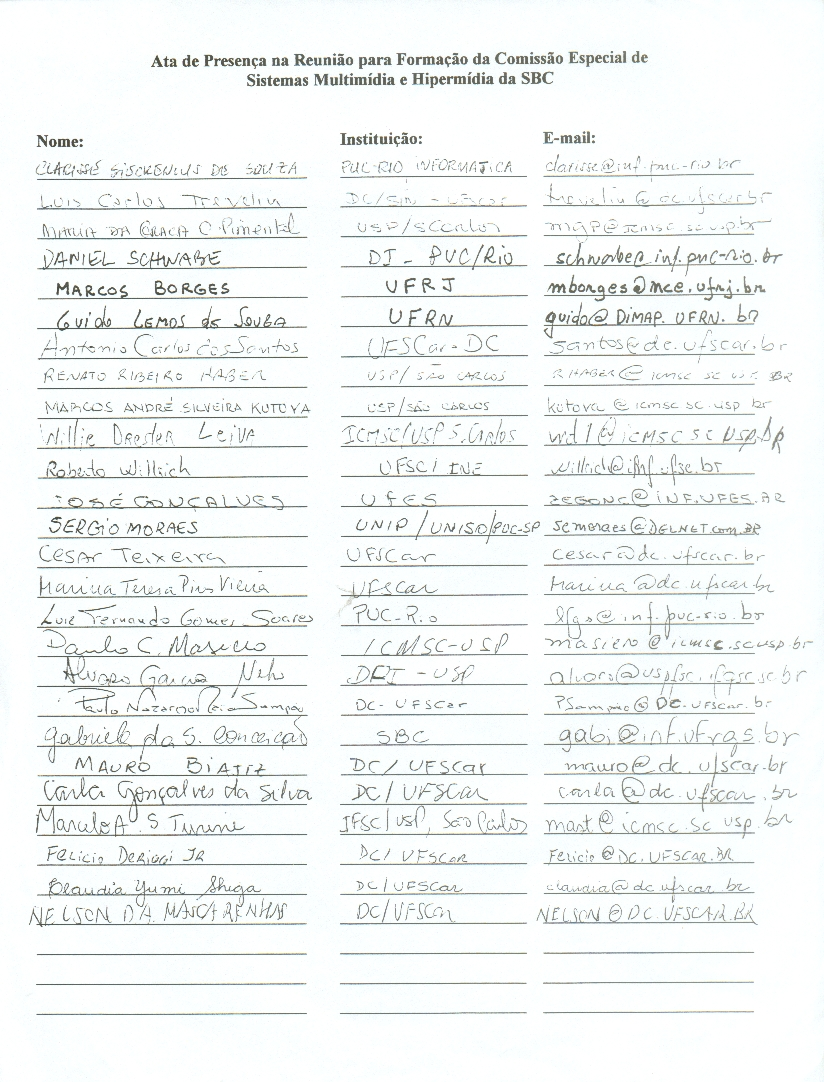 Ata de Presença na Reunião para Formação da Comissão Especial de
Sistemas Multimídia e Hipermídia da SBC
Nome: Instituição: E-mail:
CLARISSE SIECKENIUS DE SOUZA PUC-RIO INFORMATICA clarisse@inf.puc-rio.br
Luis Carlos Trevelin DC/ - UFSCar trevelin@dc.ufscar.br
MARIA DA GRACA C. Pimentel USP/SCarlos mgp@icmsc.sc.usp.br
DANIEL SCHWABE DI - PUC/Rio schwabe@inf.puc-rio.br
MARCOS BORGES UFRJ mborges@nce.ufrj.br
GUIDO LEMOS de SOUZA UFRN guido@DIMAP.UFRN.br
Antonio Carlos dos Santos UFSCar-DC santos@dc.ufscar.br
RENATO RIBEIRO HABER USP/SÃO CARLOS RHABER@icmsc.sc.usp.BR
MARCOS ANDRÉ SILVEIRA KUTOVA USP/SÃO CARLOS kutova@icmsc.sc.usp.br
Willie Dresler LEIVA ICMSC/USP S.Carlos wdl@icmsc.sc.usp.br
Roberto Willrich UFSC/INE willrich@inf.ufsc.br
JOSÉ GONÇALVES UFES ZEGONC@INF.UFES.BR
SERGIO MORAES UNIP/UNISO/PUC-SP semoraes@DELNET.com.BR
CESAR TEIXEIRA UFSCar cesar@dc.ufscar.br
Marina Teresa Pires Vieira UFSCar Marina@dc.ufscar.br
Luiz Fernando Gomes Soares PUC-Rio lfgs@inf.puc-rio.br
Paulo C. Masiero ICMSC-USP masiero@icmsc.sc.usp.br
Alvaro Garcia Neto -USP alvaro@uspfsc.ifqsc.sc.br
Paulo Nazareno Maia Sampaio DC-UFSCar PSampaio@DC.UFSCar.br
Gabriela da S. Conceição SBC gabi@inf.ufrgs.br
MAURO BIAJIZ DC/UFSCar mauro@dc.ufscar.br
Carla Gonçalves da Silva DC/UFSCar carla@dc.ufscar.br
Marcelo A. S. Turine IFSC/USP, São Carlos mast@icmsc.sc.usp.br
FELICIO DERIGGI JR DC/UFSCar Felicio@DC.UFSCAR.BR
Claudia Yumi Shiga DC/UFSCar claudia@dc.ufscar.br
NELSON D.A. MASCARENHAS DC/UFSCar NELSON@DC.UFSCAR.BR